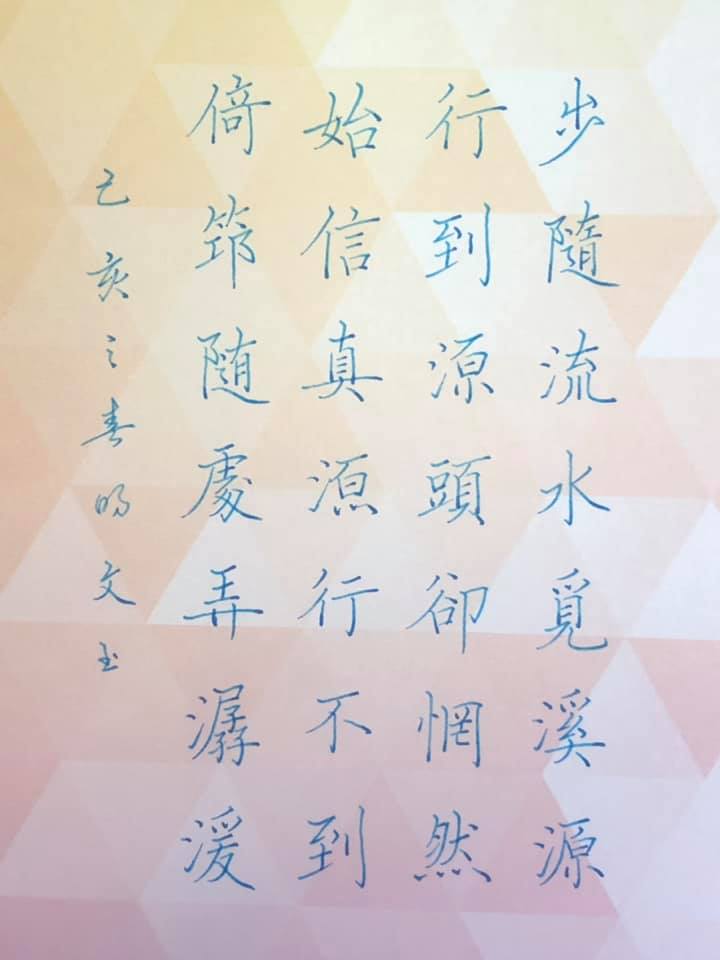 步隨流水覓溪源
行到源頭卻惘然
始信真源行不到
倚筇随處弄潺湲
己亥之春文玉